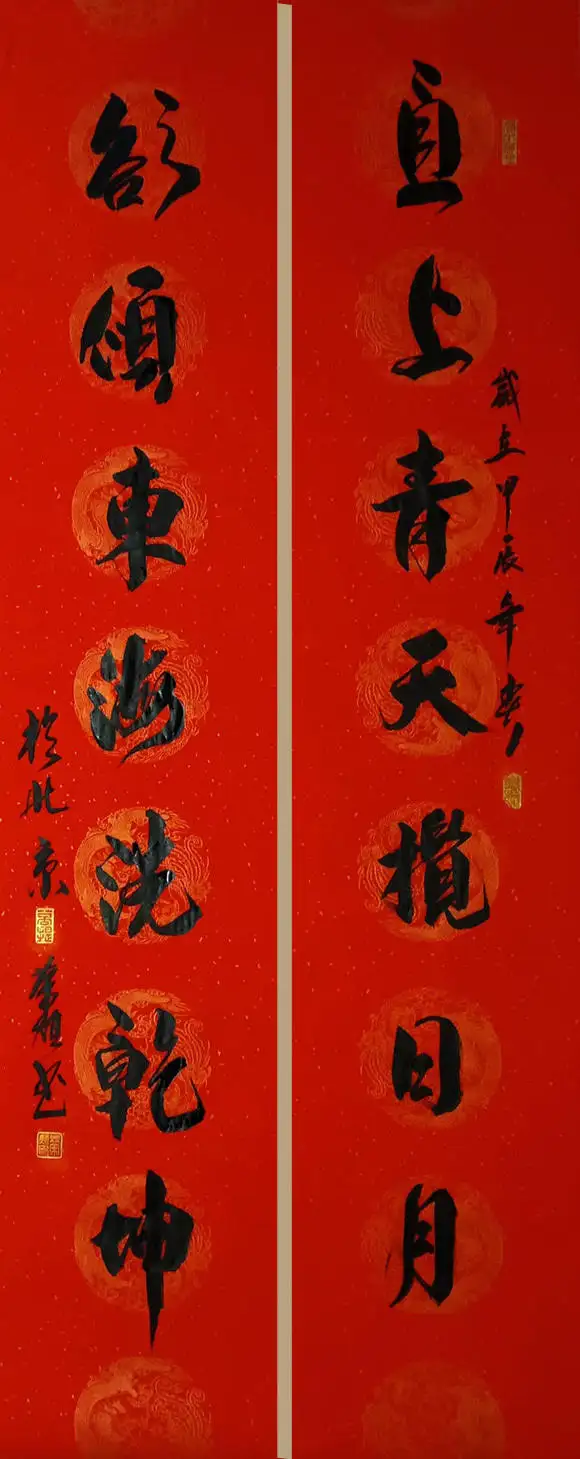 直上青天攬日月
歲在甲辰年春
欲傾東海洗乾坤
於北京
書